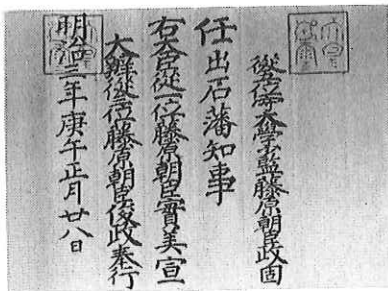 從五位守大學少監藤原朝臣政固
任出石藩知事
右大臣從一位藤原朝臣實美宣
大辨從三位藤原朝臣俊政奉行
明治三年庚午正月廿八日